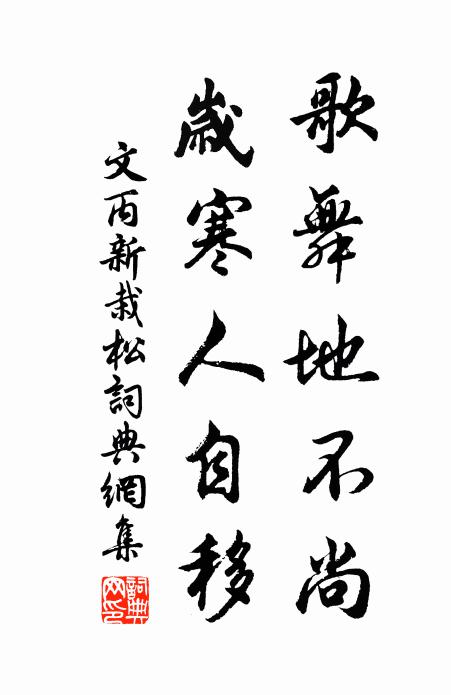 歌舞地不尚
歲寒人自移
文丙新栽松詞典網集
詞典網印